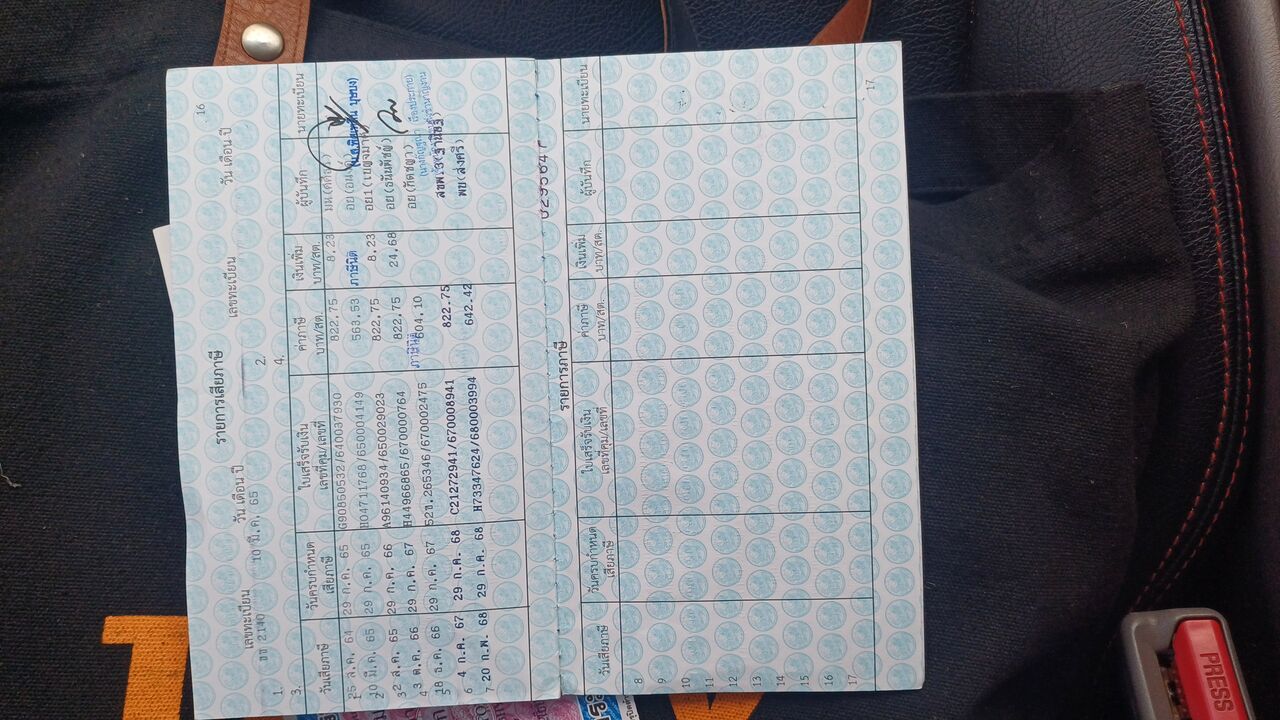 16
รายการเสียภาษี
เลขทะเบียน วัน เดือน ปี เลขทะเบียน วัน เดือน ปี
1. ขข 2140 10 มี.ค. 65 2.
3. 4.
วันเสียภาษี วันครบกำหนดเสียภาษี ใบเสร็จรับเงิน เลขที่คุม/เลขที่ ค่าภาษี บาท/สต. เงินเพิ่ม บาท/สต. ผู้บันทึก นายทะเบียน
1 5 ส.ค. 64 29 ก.ค. 65 G90860532/640037930 822.75 8.23
2 10 มี.ค. 65 29 ก.ค. 65 H04711768/650004149 563.53 ภาษีนิติ
3 2 ส.ค. 65 29 ก.ค. 66 A96140934/650029023 822.75 8.23 อย1(เบญจมา
4 3 ต.ค. 66 29 ก.ค. 67 H44966865/670000764 822.75 24.68 อย(ธนันพัชญ์)
5 18 ธ.ค. 66 29 ก.ค. 67 52ข.265346/670002475 ภาษีนิติ 604.10 อย(กัดชฎา)
6 4 ก.ค. 67 29 ก.ค. 68 C21272941/670008941 822.75
7 20 ก.พ. 68 29 ก.ค. 68 H73347624/680003994 642.42 พย(ส่งศรี)
รายการภาษี
วันเสียภาษี วันครบกำหนดเสียภาษี ใบเสร็จรับเงิน เลขที่คุม/เลขที่ ค่าภาษี บาท/สต. เงินเพิ่ม บาท/สต. ผู้บันทึก นายทะเบียน
8
9
10
11
12
13
14
15
16
17
17
PRESS